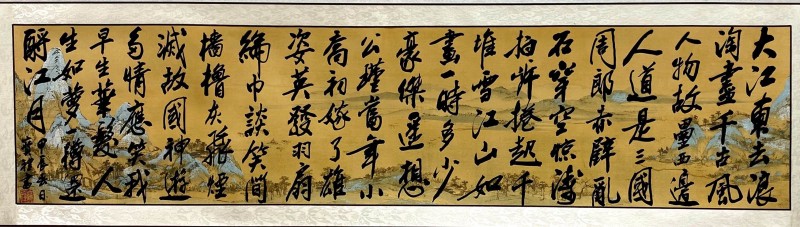 大江東去浪
淘盡千古風
人物故壘西邊
人道是三國
周郎赤壁亂
石穿空惊濤
拍岸捲起千
堆雪江山如
畫一時多少
豪傑遥想
公瑾當年小
喬初嫁了雄
姿英發羽扇
綸巾談笑間
檣櫓灰飛煙
滅故國神遊
多情應笑我
早生華髮人
生如夢一樽還
酹江月